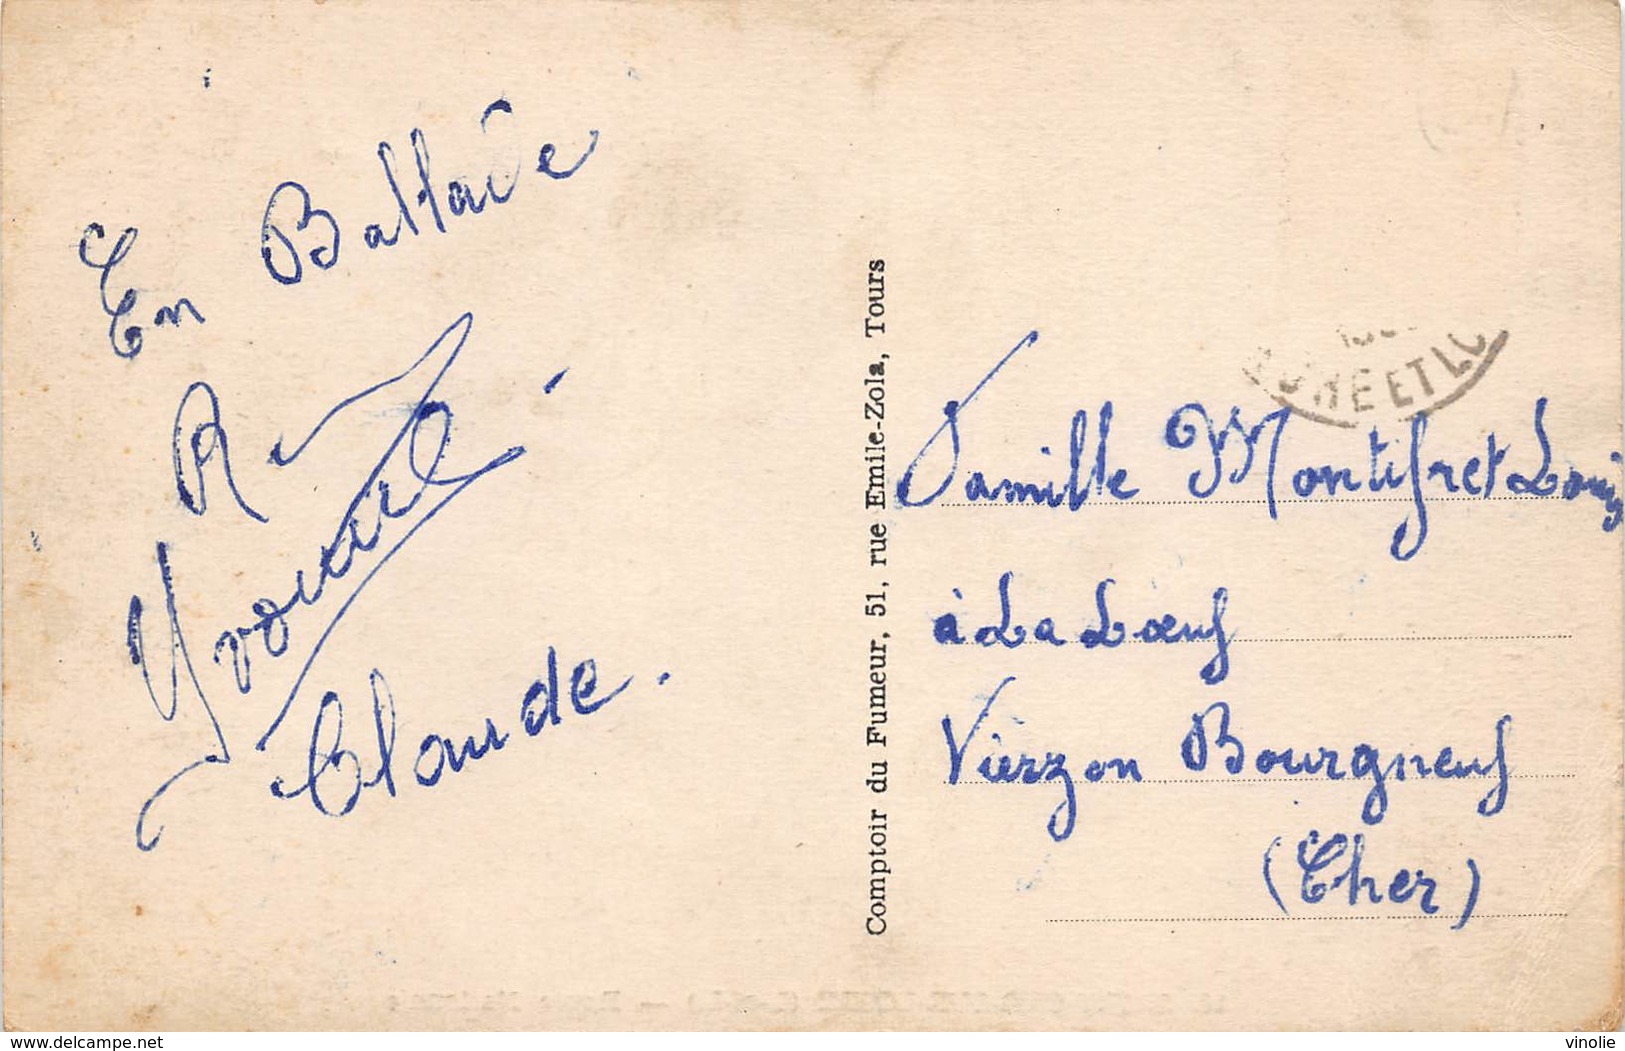 En Ballade
R
Yvonne
Claude.
Comptoir du Fumeur, 51, rue Emile-Zola, Tours
URE ET LO
Famille Montifret Louis
à La Lœuf
Vierzon Bourgneuf
(Cher)
www.delcampe.net
vinolie